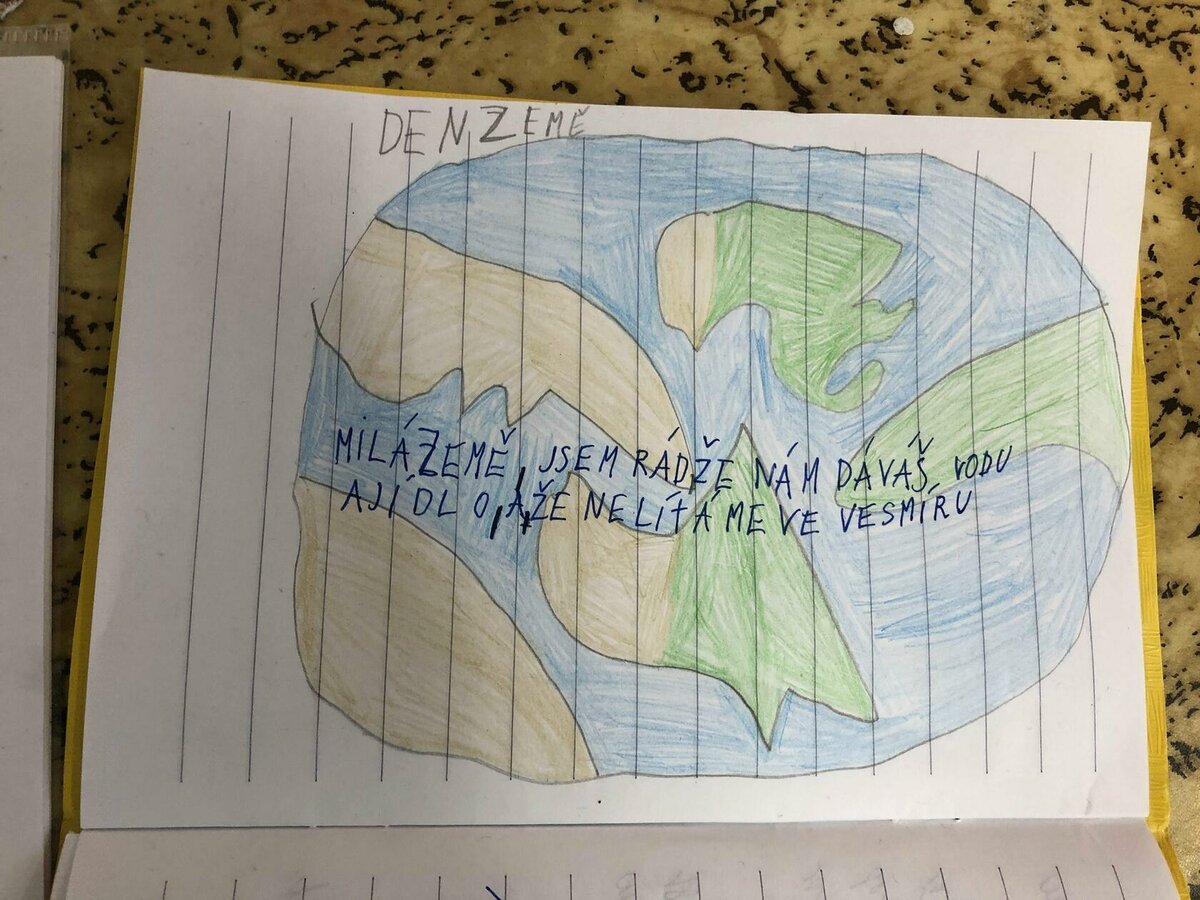 DEN ZEMĚ
MILÁ ZEMĚ, JSEM RÁD ŽE NÁM DÁVAŠ, VODU
A JÍDLO, A ŽE NELÍTÁME VE VESMÍRU